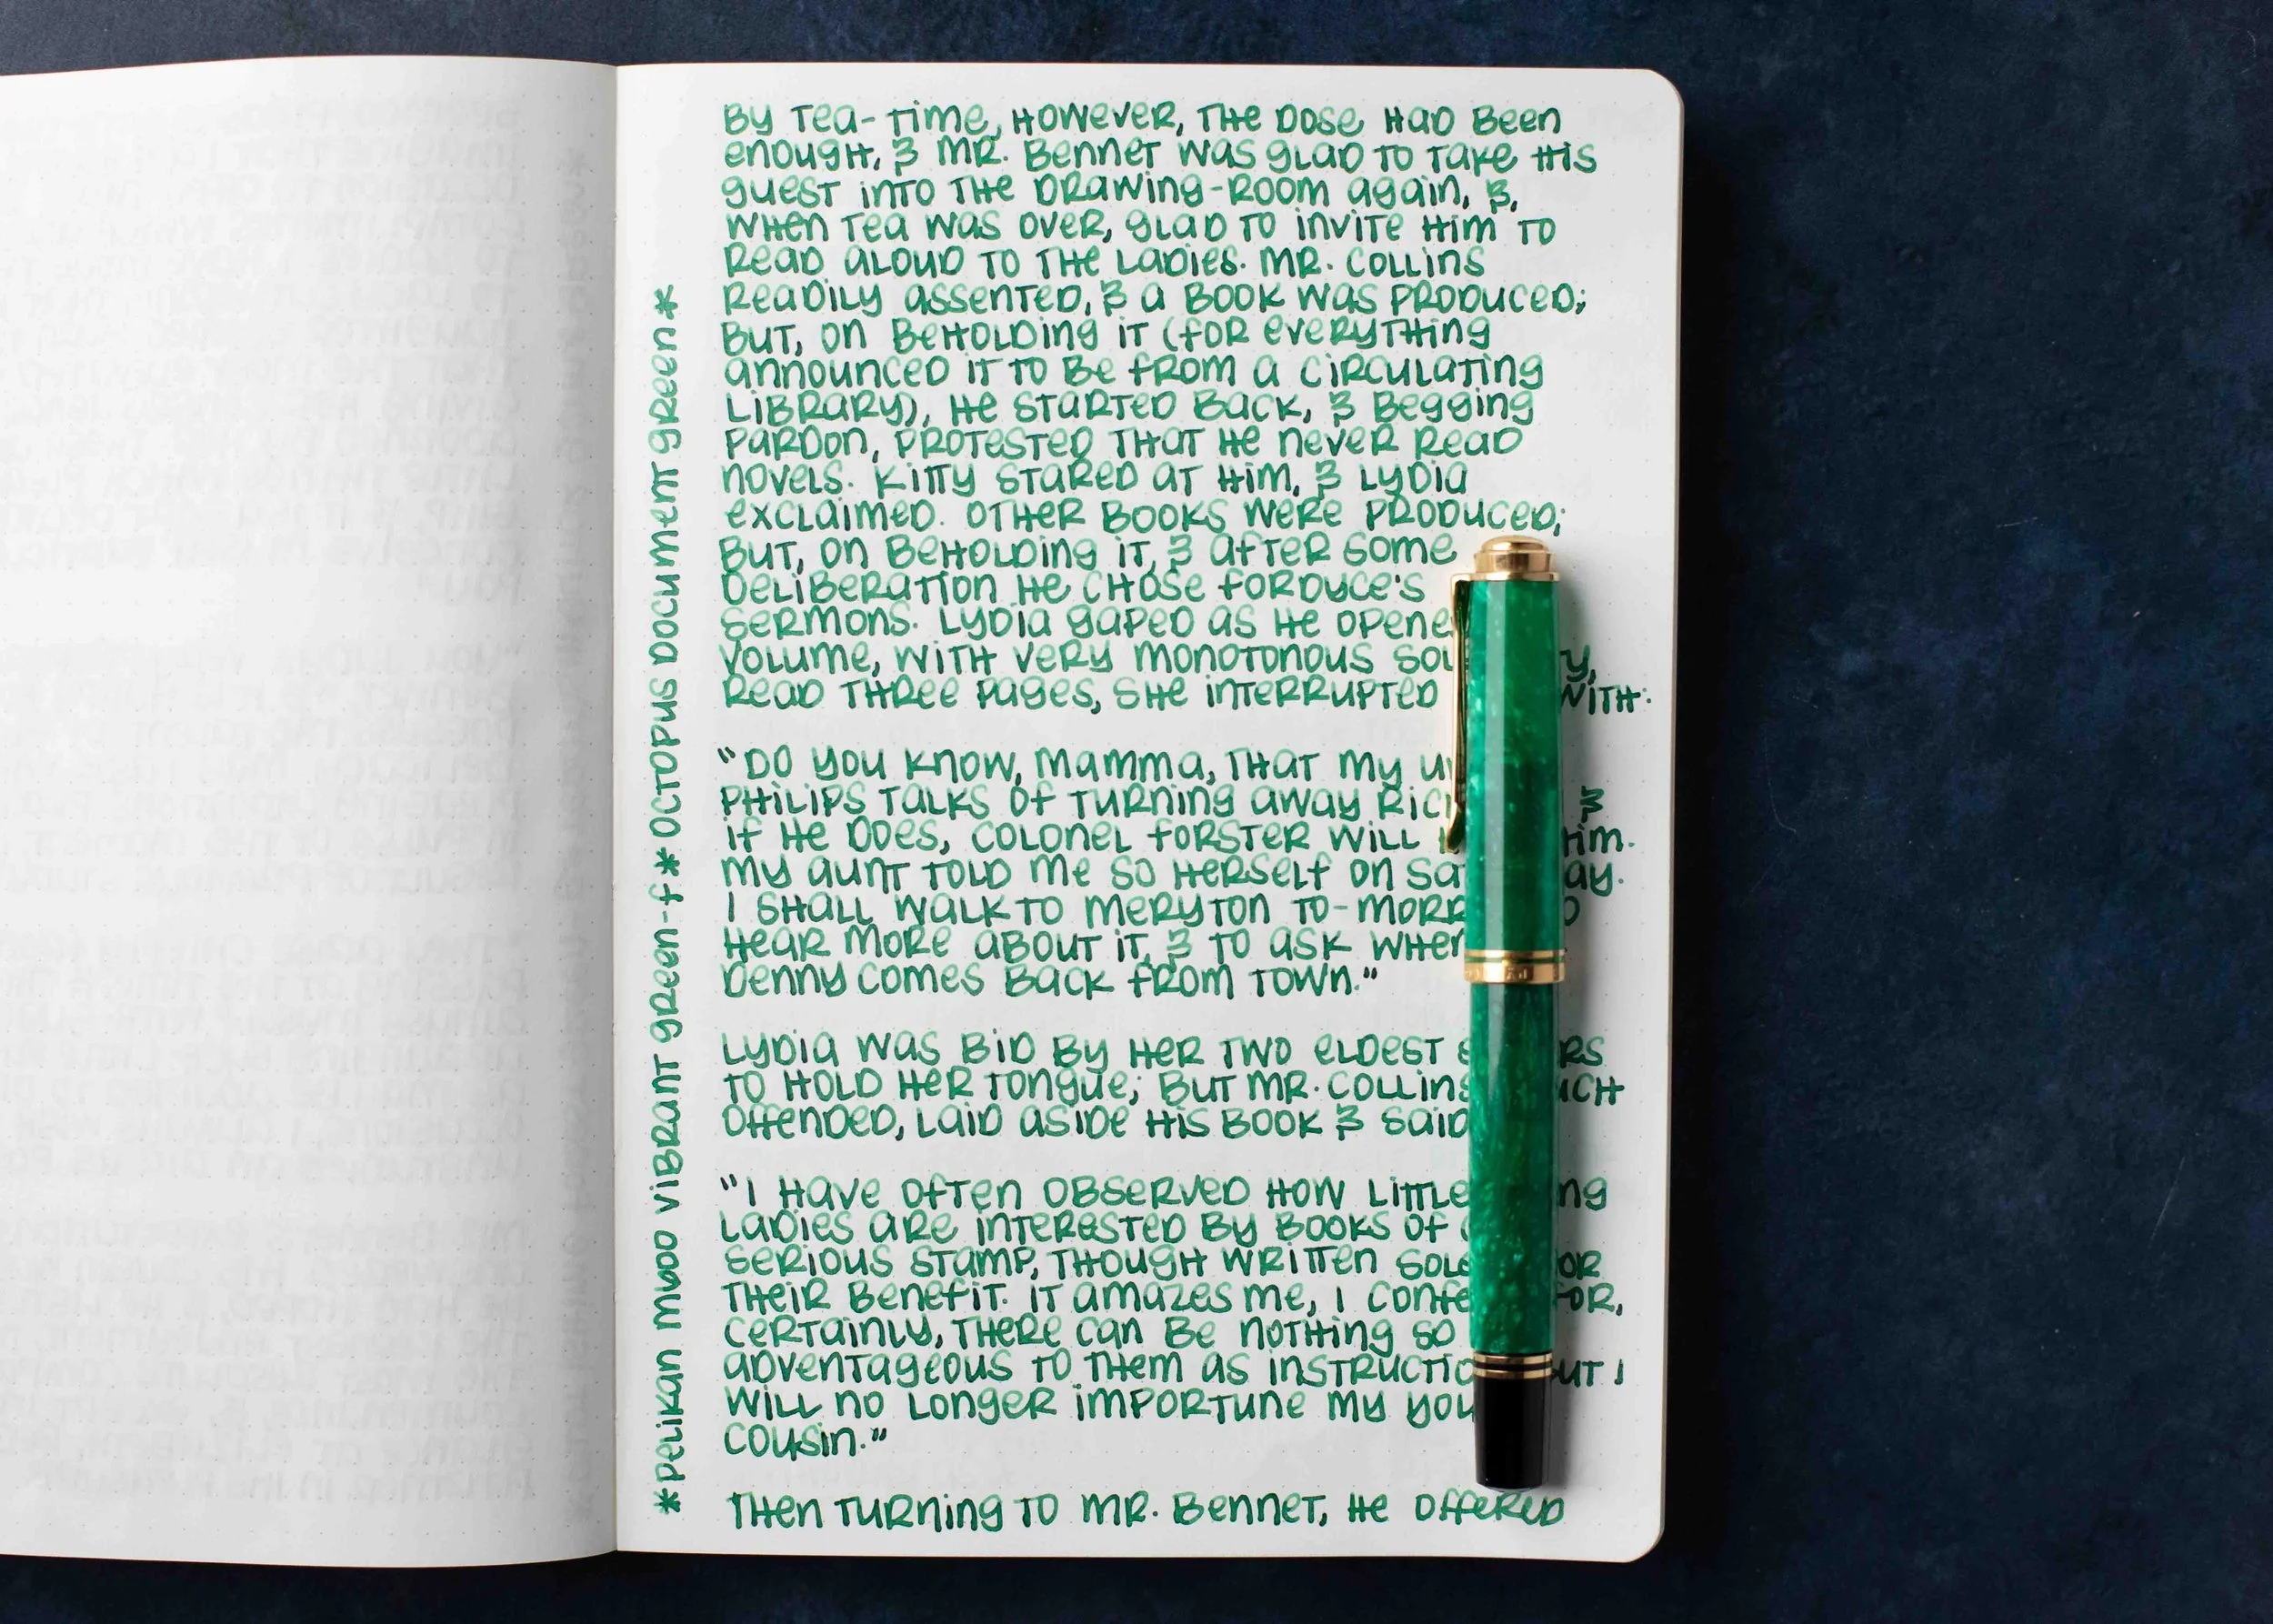 *Pelikan M600 Vibrant Green-F * Octopus Document Green*
By tea-time, however, the dose had been
enough, & Mr. Bennet was glad to take his
guest into the drawing-room again, &,
when tea was over, glad to invite him to
read aloud to the ladies. Mr. Collins
readily assented, & a book was produced;
but, on beholding it (for everything
announced it to be from a circulating
library), he started back, & begging
pardon, protested that he never read
novels. Kitty stared at him, & Lydia
exclaimed. Other books were produced;
but, on beholding it, & after some
deliberation he chose Fordyce's
Sermons. Lydia gaped as he opene
volume, with very monotonous
read three pages, she interrupted with:
"Do you know, mamma, that my
Philips talks of turning away &
if he does, Colonel Forster will him.
My aunt told me so herself on
I shall walk to Meryton to-
hear more about it, & to ask when
Denny comes back from town."
Lydia was bid by her two eldest
to hold her tongue; but Mr. Collins
offended, laid aside his book & said
"I have often observed how little
ladies are interested by books of
serious stamp, though written for
their benefit. It amazes me, I for,
certainly, there can be nothing so
adventageous to them as but I
will no longer importune my
cousin."
Then turning to Mr. Bennet, he offered